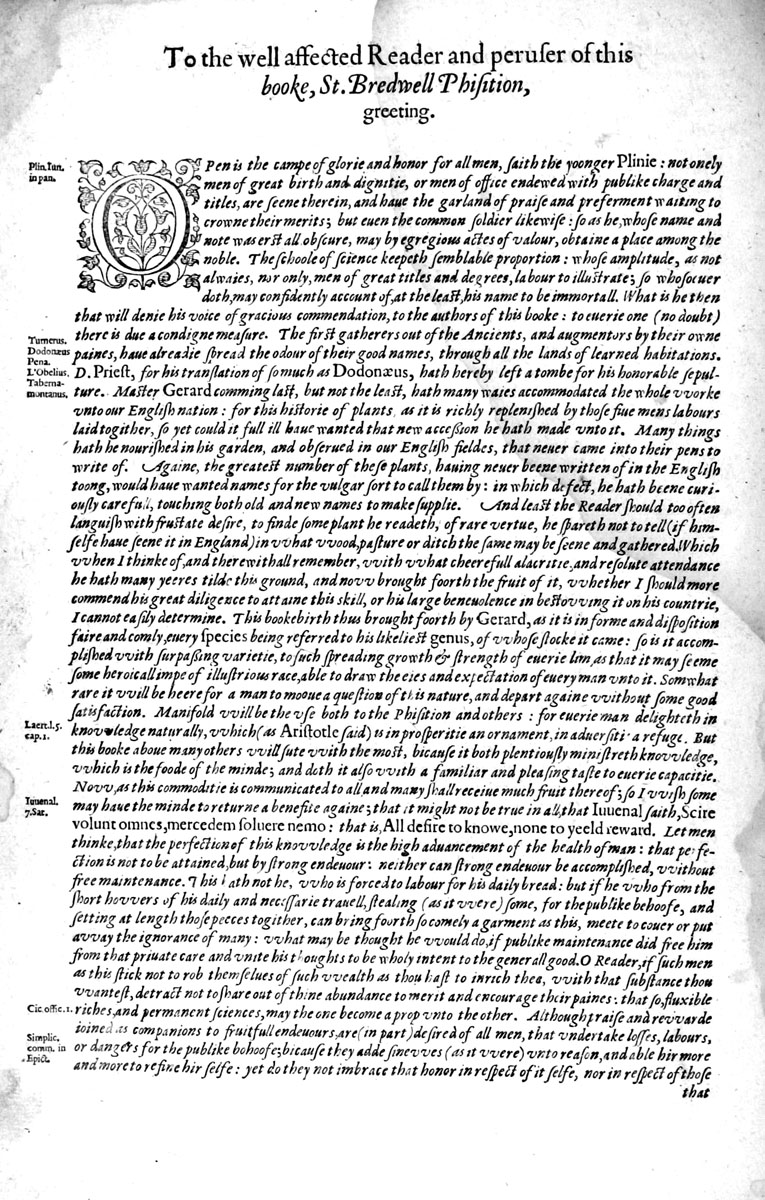 To the well affected Reader and peruſer of this
booke, St. Bredwell Phiſition,
greeting.
Plin. Iun.
in pan.
OPen is the campe of glorie and honor for all men, ſaith the yoonger Plinie : not onely
men of great birth and dignitie, or men of office endewed with publike charge and
titles, are ſeene therein, and haue the garland of praiſe and preferment waiting to
crowne their merits; but euen the common ſoldier likewiſe : ſo as he, whoſe name and
note was erſt all obſcure, may by egregious actes of valour, obtaine a place among the
noble. The ſchoole of ſcience keepeth ſemblable proportion : whoſe amplitude, as not
alwaies, nor only, men of great titles and degrees, labour to illuſtrate; ſo whoſoeuer
doth, may confidently account of, at the leaſt, his name to be immortall. What is he then
that will denie his voice of gracious commendation, to the authors of this booke : to euerie one (no doubt)
there is due a condigne meaſure. The firſt gatherers out of the Ancients, and augmentors by their owne
Turnerus.
Dodonæus
Pena.
L'Obelius.
Taberna-
montanus.
paines, haue alreadie ſpread the odour of their good names, through all the lands of learned habitations.
D. Prieſt, for his tranſlation of ſo much as Dodonæus, hath hereby left a tombe for his honorable ſepul-
ture. Maſter Gerard comming laſt, but not the leaſt, hath many waies accommodated the whole vvorke
vnto our Engliſh nation : for this hiſtorie of plants, as it is richly repleniſhed by thoſe fiue mens labours
laid together, ſo yet could it full ill haue wanted that new acceſſion he hath made vnto it. Many things
hath he nouriſhed in his garden, and obſerued in our Engliſh fieldes, that neuer came into their pens to
write of. Againe, the greateſt number of theſe plants, hauing neuer beene written of in the Engliſh
toong, would haue wanted names for the vulgar ſort to call them by : in which defect, he hath beene curi-
ouſly carefull, touching both old and new names to make ſupplie. And leaſt the Reader ſhould too often
languiſh with fruſtate deſire, to finde ſome plant he readeth, of rare vertue, he ſpareth not to tell (if him-
ſelfe haue ſeene it in England) in vvhat vvood, paſture or ditch the ſame may be ſeene and gathered. Which
vvhen I thinke of, and therewithall remember, vvith vvhat cheerefull alacritie, and reſolute attendance
he hath many yeeres tilde this ground, and novv brought foorth the fruit of it, vvhether I ſhould more
commend his great diligence to attaine this skill, or his large beneuolence in beſtovving it on his countrie,
I cannot eaſily determine. This booke birth thus brought foorth by Gerard, as it is in forme and diſpoſition
faire and comly, euery ſpecies being referred to his likelieſt genus, of vvhoſe ſtocke it came : ſo is it accom-
pliſhed vvith ſurpaſſing varietie, to ſuch ſpreading growth & ſtrength of euerie lim, as that it may ſeeme
ſome heroicall impe of illuſtrious race, able to draw the eies and expectation of euery man vnto it. Somwhat
rare it vvill be heere for a man to mooue a queſtion of this nature, and depart againe vvithout ſome good
ſatisfaction. Manifold vvill be the vſe both to the Phiſition and others : for euerie man delighteth in
Laert. l. 5.
cap. 1.
knovvledge naturally, vvhich (as Ariſtotle ſaid) is in proſperitie an ornament, in aduerſitie a refuge. But
this booke aboue many others vvill ſute vvith the moſt, bicauſe it both plentiouſly miniſtreth knovvledge,
vvhich is the foode of the minde; and doth it alſo vvith a familiar and pleaſing taſte to euerie capacitie.
Novv, as this commoditie is communicated to all, and many ſhall receiue much fruit thereof; ſo I vviſh ſome
Iuuenal.
7. Sat.
may haue the minde to returne a benefite againe; that it might not be true in all, that Iuuenal ſaith, Scire
volunt omnes, mercedem ſoluere nemo : that is, All deſire to knowe, none to yeeld reward. Let men
thinke, that the perfection of this knovvledge is the high aduancement of the health of man : that perfe-
ction is not to be attained, but by ſtrong endeuour : neither can ſtrong endeuour be accompliſhed, vvithout
free maintenance. This hath not he, vvho is forced to labour for his daily bread : but if he vvho from the
ſhort hovvers of his daily and neceſſarie trauell, ſtealing (as it vvere) ſome, for the publike behoofe, and
ſetting at length thoſe peeces together, can bring fourth ſo comely a garment as this, meete to couer or put
avvay the ignorance of many : vvhat may be thought he vvould do, if publike maintenance did free him
from that priuate care and vnite his thoughts to be wholy intent to the generall good. O Reader, if ſuch men
as this ſtick not to rob themſelues of ſuch vvealth as thou haſt to inrich thee, vvith that ſubſtance thou
vvanteſt, detract not to ſhare out of thine abundance to merit and encourage their paines : that ſo, fluxible
Cic. offic. 1.
riches, and permanent ſciences, may the one become a prop vnto the other. Although praiſe and revvarde
Simplic.
comm. in
Epict.
ioined as companions to fruitfull endeuours, are (in part) deſired of all men, that vndertake loſſes, labours,
or dangers for the publike bohoofe; becauſe they adde ſinevves (as it vvere) vnto reaſon, and able hir more
and more to refine hir ſelfe : yet do they not imbrace that honor in reſpect of it ſelfe, nor in reſpect of thoſe
that